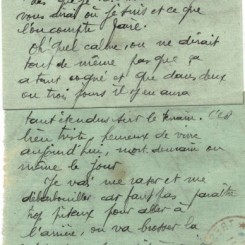 vous dirai où je suis et ce que
l'on compte faire.
Oh quel calme, on ne dirait
tout de même pas que ça
a tant cogné et que dans deux
ou trois jours il y en aura
tant étendus sur le terrain. C'est
bien triste, heureux de vivre
aujourd'hui, mort demain ou
même le jour
Je vais me raser et me
débarbouiller car faut pas paraître
trop piteux pour aller à
l'arrière, on va brosser la